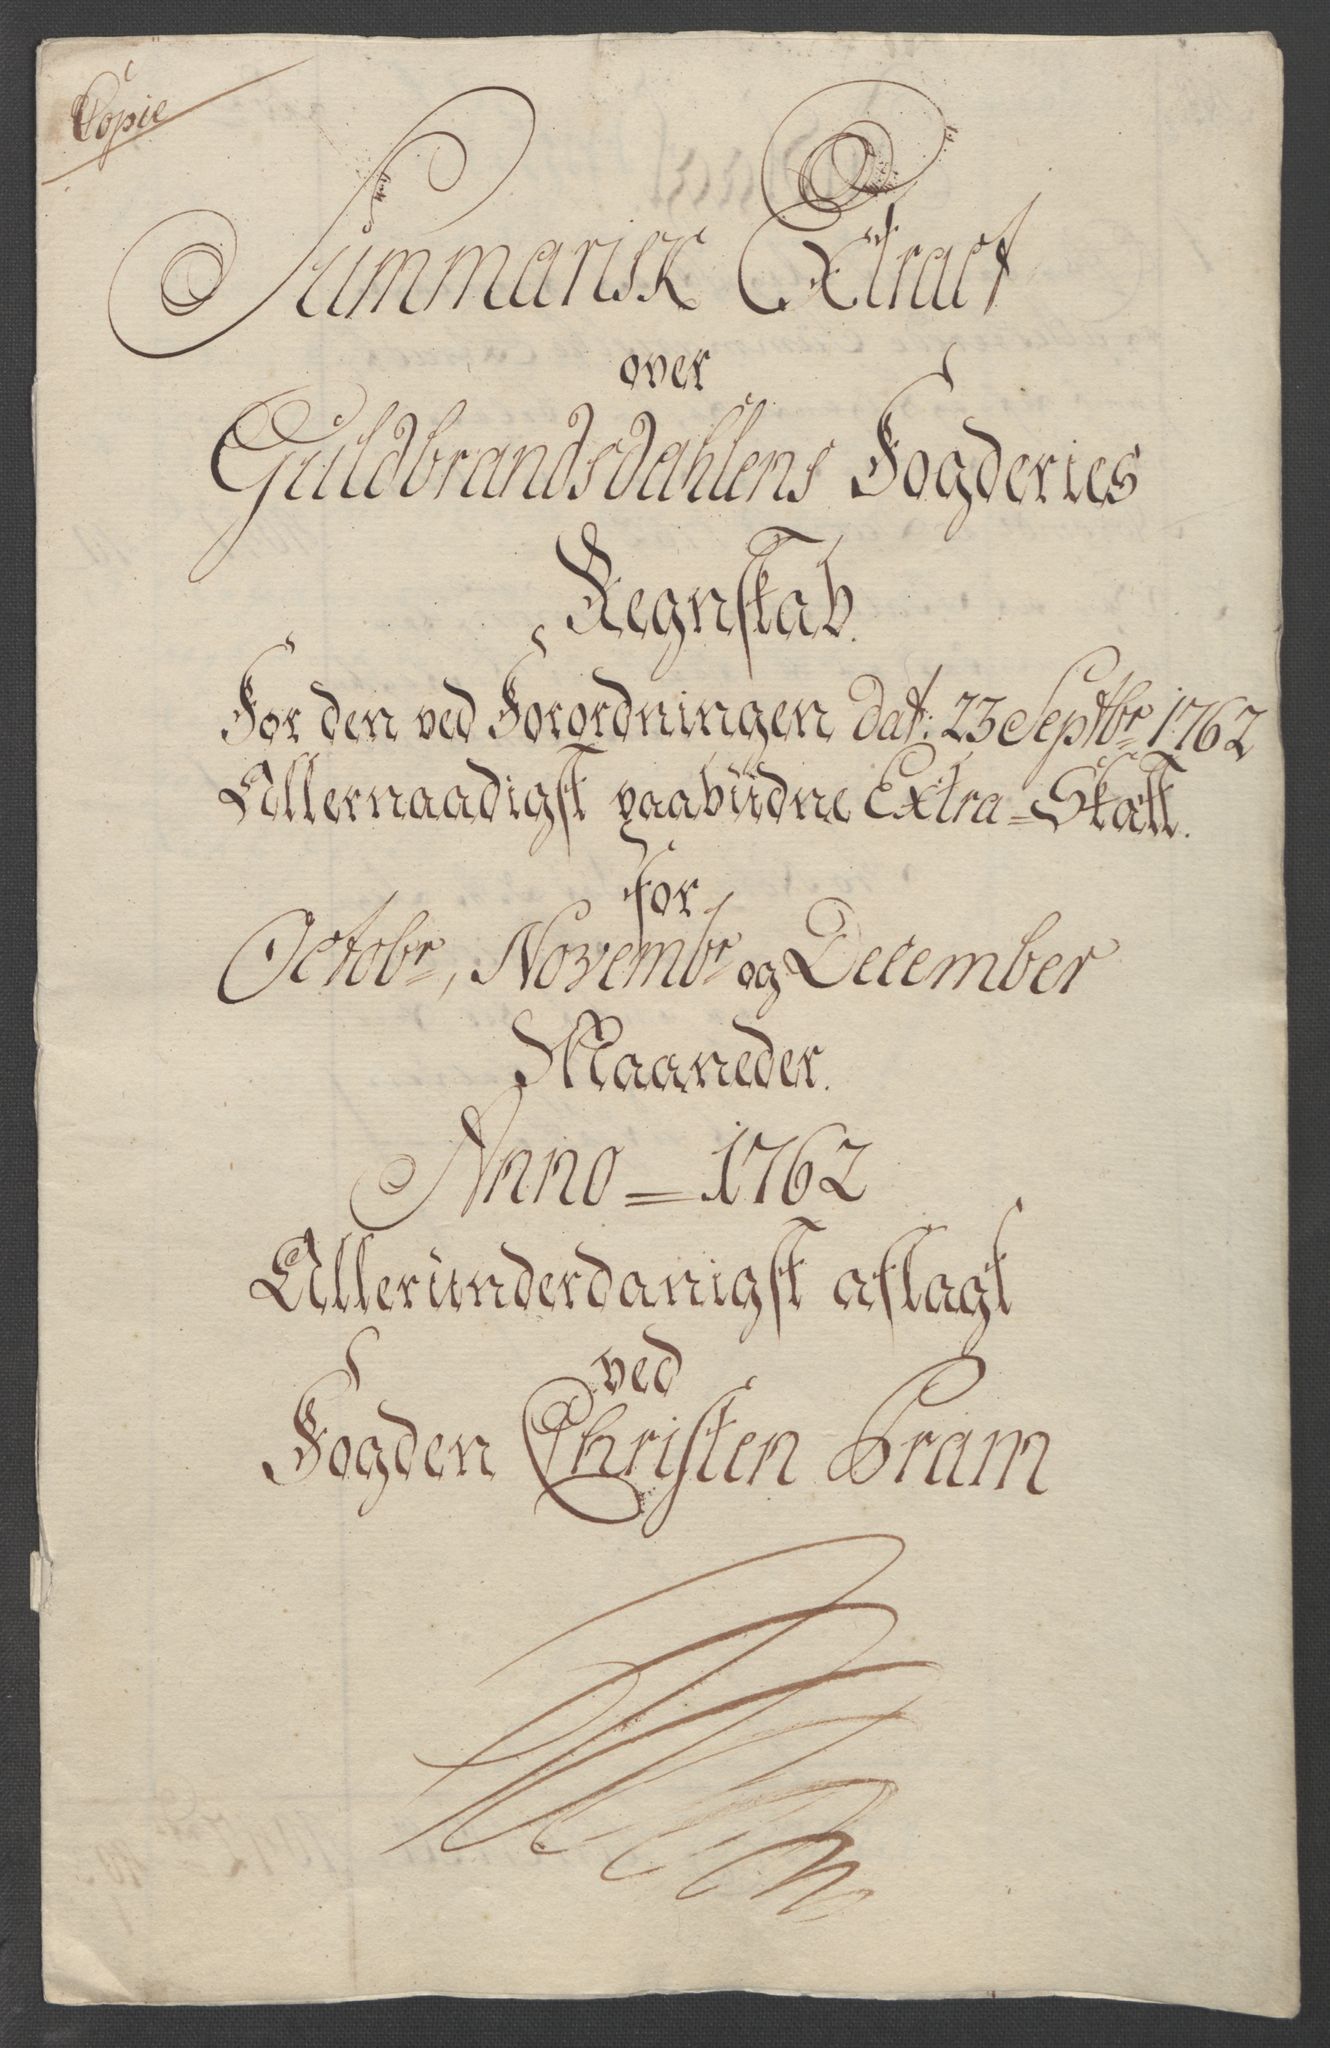 Copie
Summarisk Extract
over
Guldbrandsdahlens Fogderies
Regnskab.
For den ved Forordningen Dat: 23 Septbr 1762
Allernaadigst paabudne Extra=Skatt.
for
Octobr, Novembr og December
Maaneder.
Anno = 1762
Allerunderdanigst aflagt
ved
Fogden Christen Pram